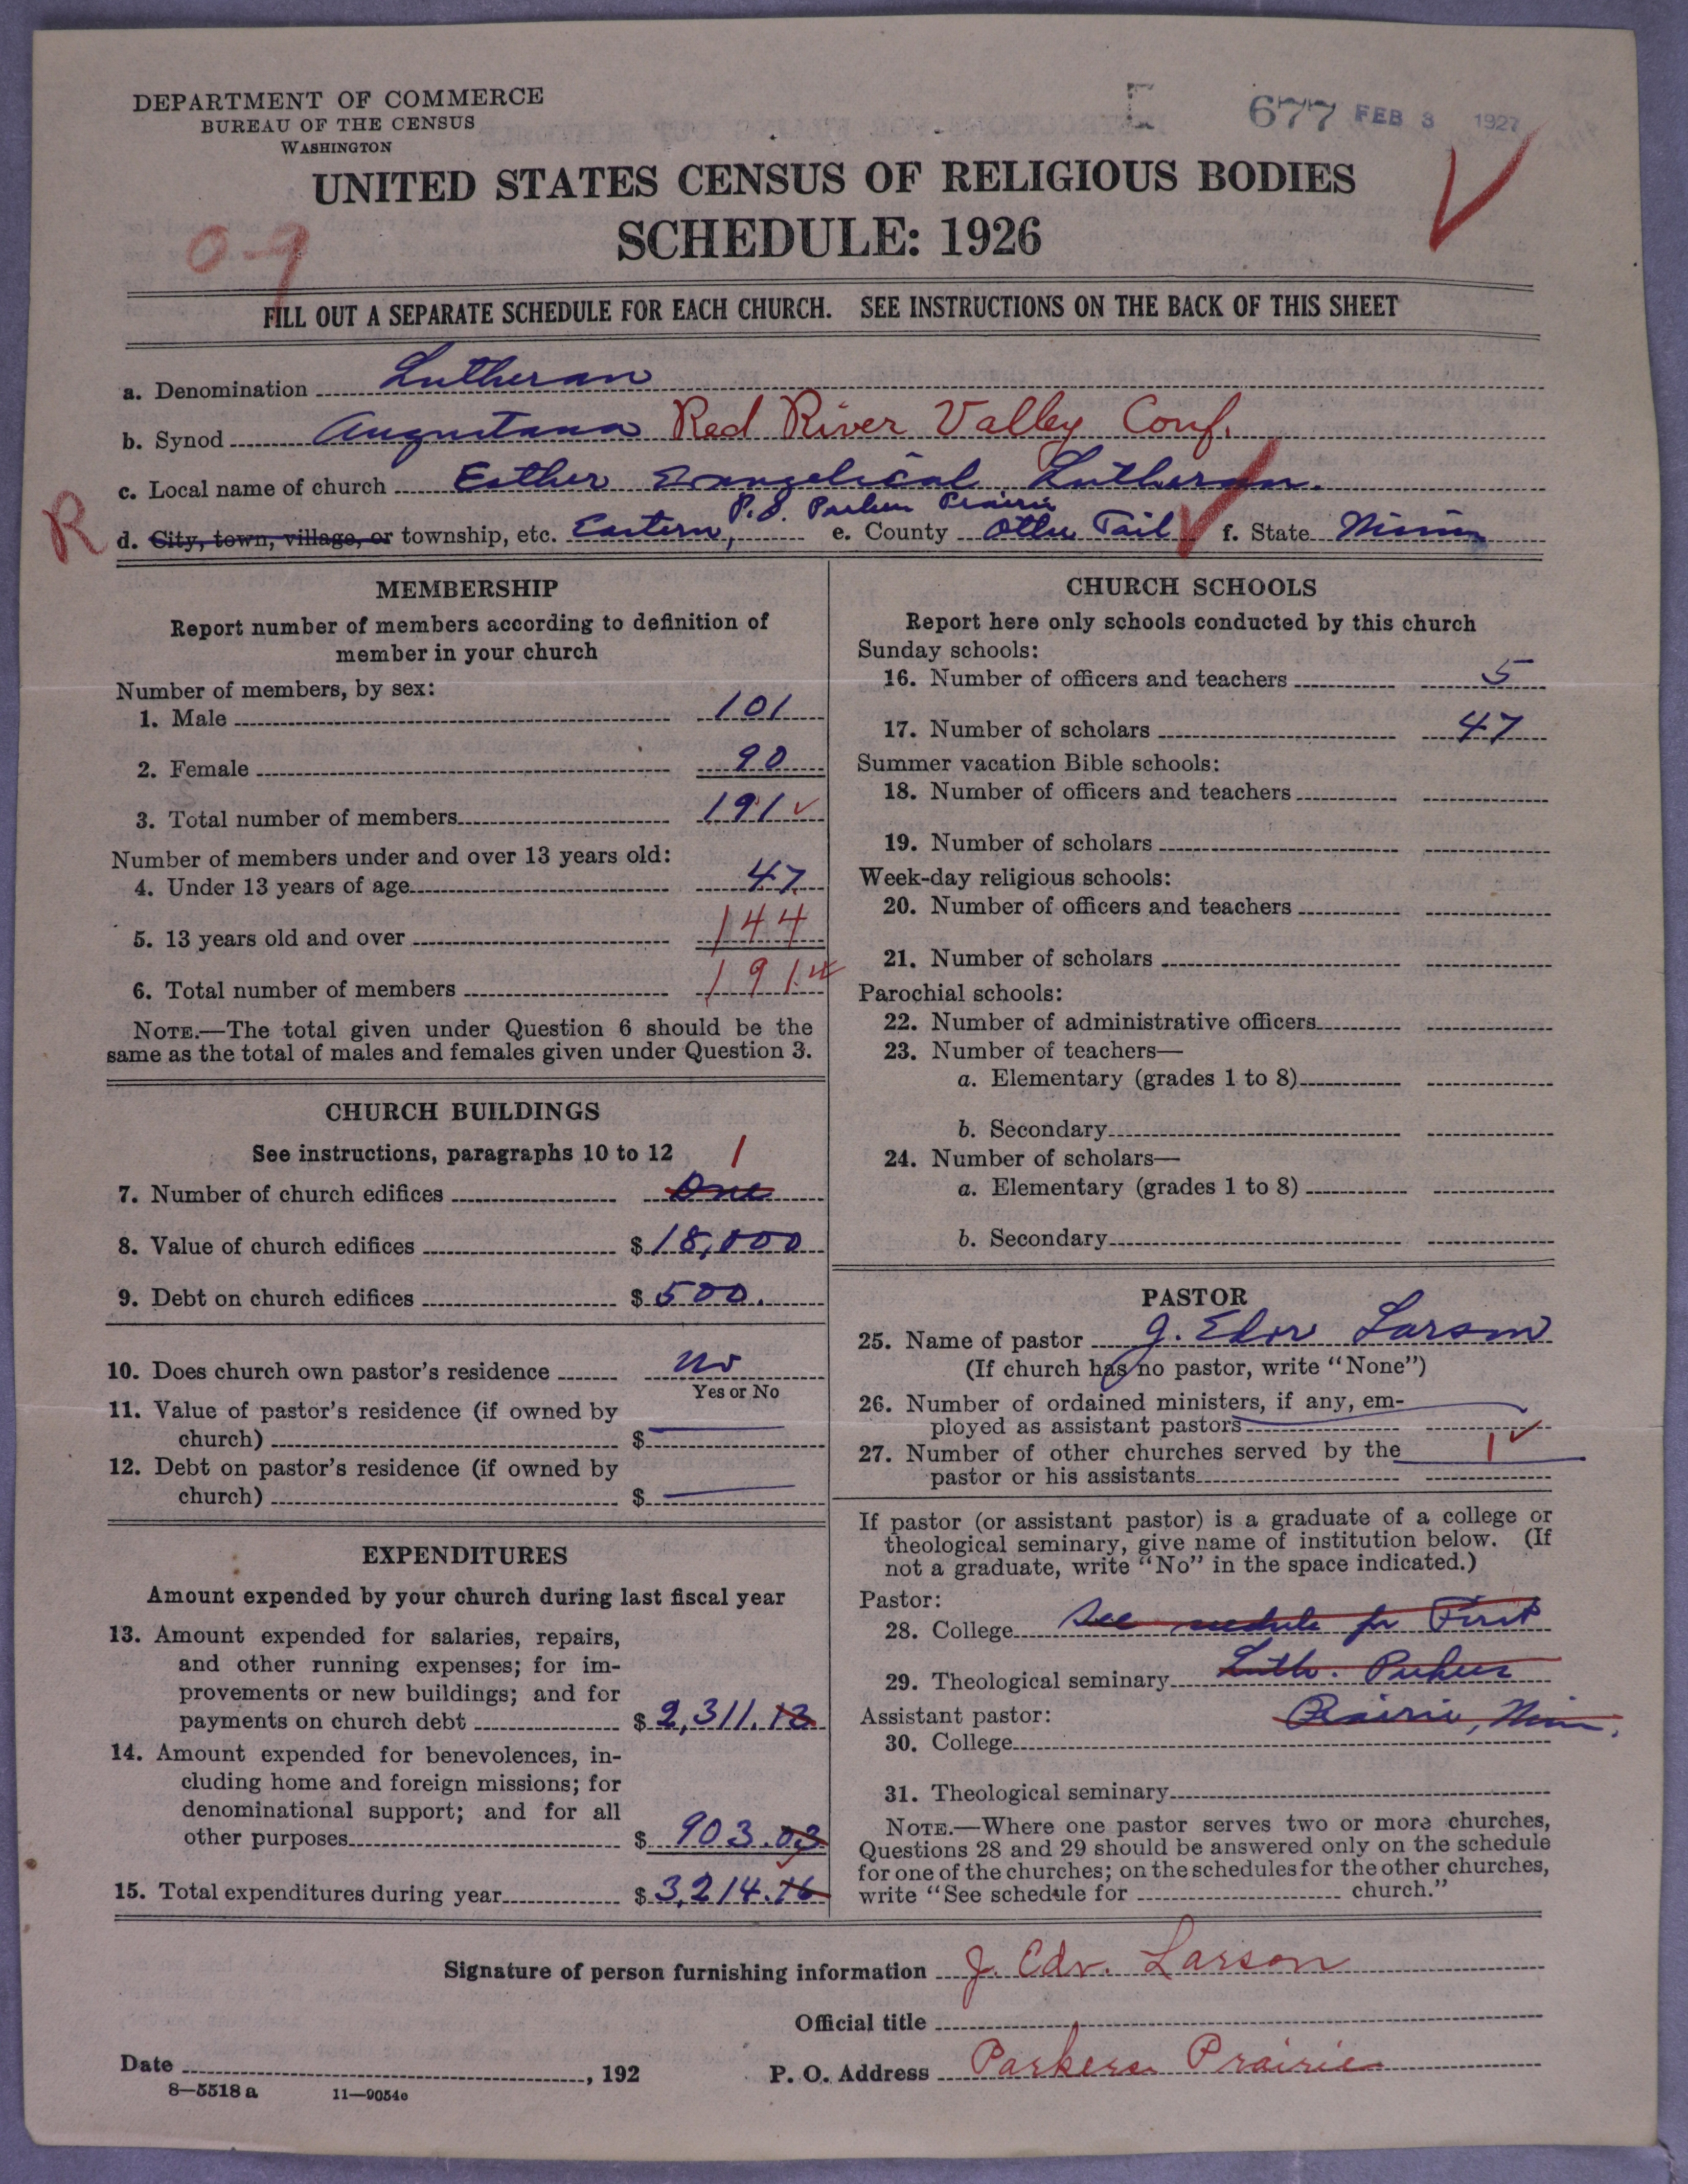 DEPARTMENT OF COMMERCE
BUREAU OF THE CENSUS
WASHINGTON
E 677 FEB 3 1927
UNITED STATES CENSUS OF RELIGIOUS BODIES
SCHEDULE: 1926
0-9
FILL OUT A SEPARATE SCHEDULE FOR EACH CHURCH. SEE INSTRUCTIONS ON THE BACK OF THIS SHEET
a. Denomination Lutheran
b. Synod Augustana Red River Valley Conf.
c. Local name of church Esther Evangelical Lutheran.
P.O. Parkers Prairie
R d. City, town, village, or township, etc. Eastern, e. County Otter Tail f. State Minn
MEMBERSHIP
Report number of members according to definition of
member in your church
Number of members, by sex:
1. Male 101
2. Female 90
3. Total number of members 191
Number of members under and over 13 years old:
4. Under 13 years of age 47
5. 13 years old and over 144
6. Total number of members 191
NOTE.—The total given under Question 6 should be the
same as the total of males and females given under Question 3.
CHURCH BUILDINGS
See instructions, paragraphs 10 to 12 1
7. Number of church edifices One
8. Value of church edifices $ 18,000
9. Debt on church edifices $ 500.
10. Does church own pastor's residence No
Yes or No
11. Value of pastor's residence (if owned by
church) $
12. Debt on pastor's residence (if owned by
church) $
EXPENDITURES
Amount expended by your church during last fiscal year
13. Amount expended for salaries, repairs,
and other running expenses; for im-
provements or new buildings; and for
payments on church debt $ 2,311.13
14. Amount expended for benevolences, in-
cluding home and foreign missions; for
denominational support; and for all
other purposes $ 903.03
15. Total expenditures during year $ 3,214.16
CHURCH SCHOOLS
Report here only schools conducted by this church
Sunday schools:
16. Number of officers and teachers 5
17. Number of scholars 47
Summer vacation Bible schools:
18. Number of officers and teachers
19. Number of scholars
Week-day religious schools:
20. Number of officers and teachers
21. Number of scholars
Parochial schools:
22. Number of administrative officers
23. Number of teachers—
a. Elementary (grades 1 to 8)
b. Secondary
24. Number of scholars—
a. Elementary (grades 1 to 8)
b. Secondary
PASTOR
25. Name of pastor J. Edv Larson
(If church has no pastor, write "None")
26. Number of ordained ministers, if any, em-
ployed as assistant pastors
27. Number of other churches served by the 1
pastor or his assistants
If pastor (or assistant pastor) is a graduate of a college or
theological seminary, give name of institution below. (If
not a graduate, write "No" in the space indicated.)
Pastor:
28. College See schedule for First
29. Theological seminary Luth. Parkers
Assistant pastor: Prairie, Minn.
30. College
31. Theological seminary
NOTE.—Where one pastor serves two or more churches,
Questions 28 and 29 should be answered only on the schedule
for one of the churches; on the schedules for the other churches,
write "See schedule for church."
Signature of person furnishing information J. Edv. Larson
Official title
Date , 192 P. O. Address Parkers Prairie
8—5518 a 11—9054c